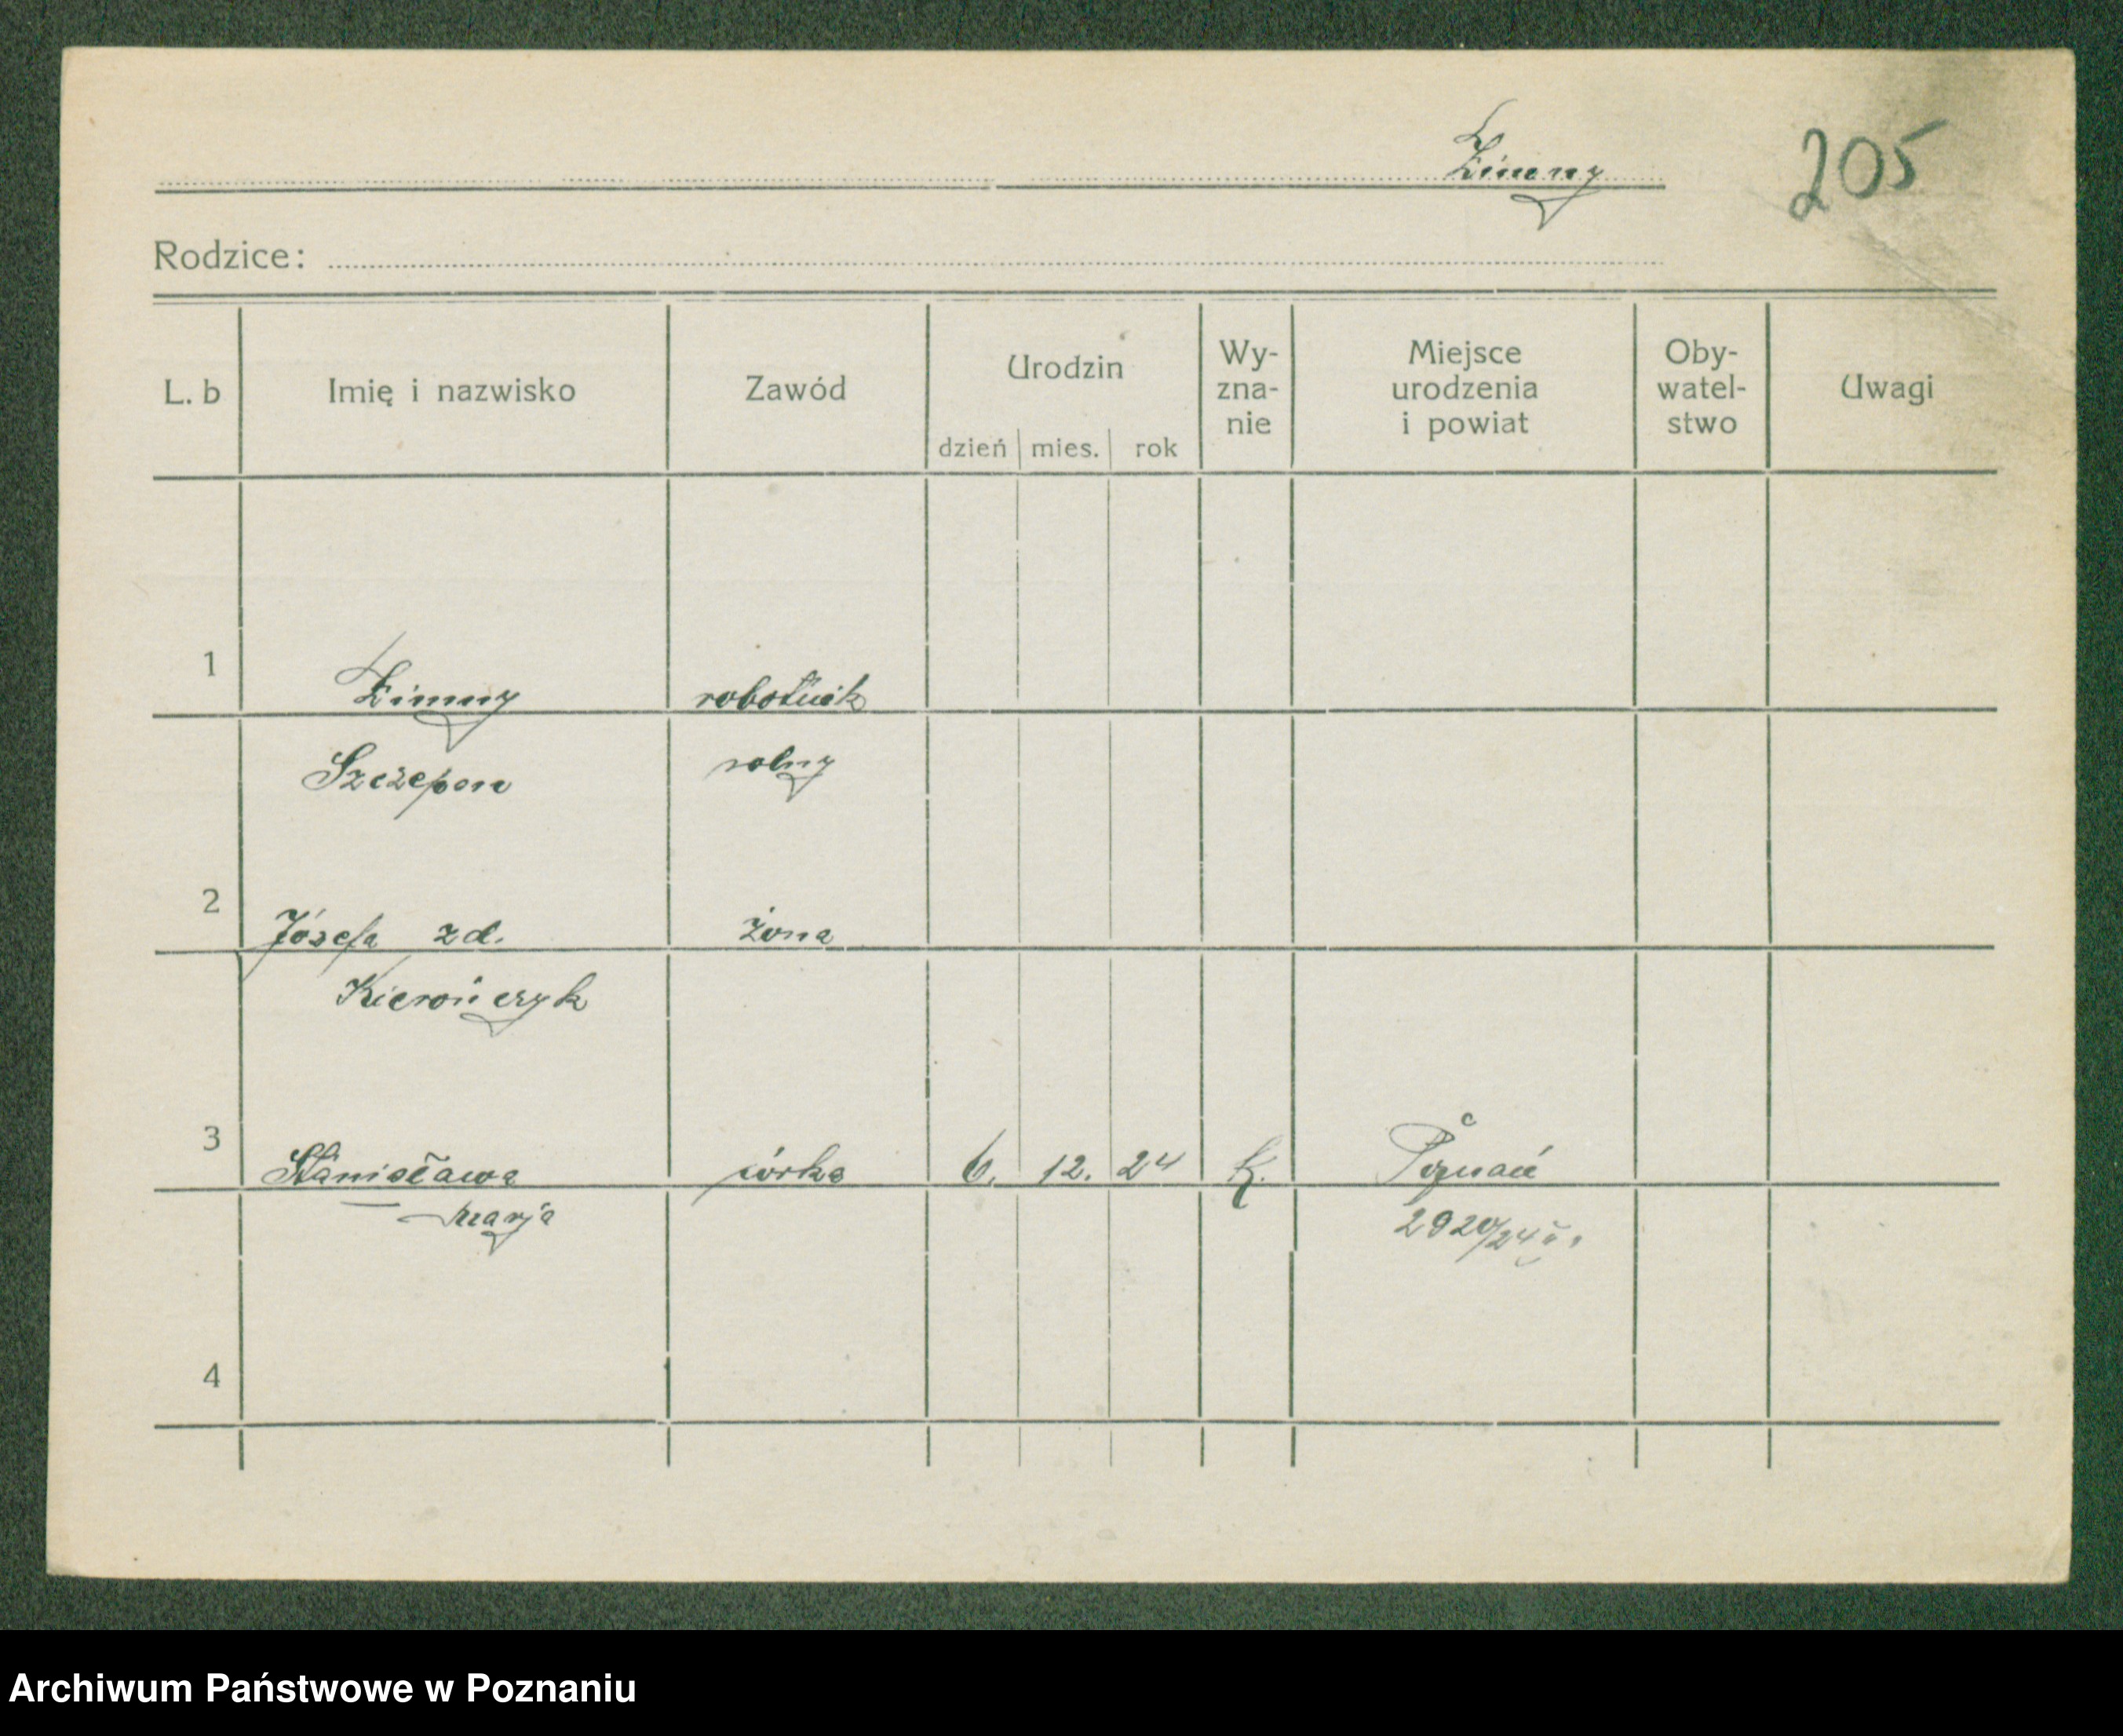 Zimny
205
Rodzice:
L. b
Imię i nazwisko
Zawód
Urodzin
dzień mies. rok
Wy-
zna-
nie
Miejsce
urodzenia
i powiat
Oby-
watel-
stwo
Uwagi
1 Zimny robotnik
Szczepan rolny
2 Józefa zd. żona
Kierończyk
3 Stanisława córka 6. 12. 24 k. Poznań
Marja 2920/24
4
Archiwum Państwowe w Poznaniu